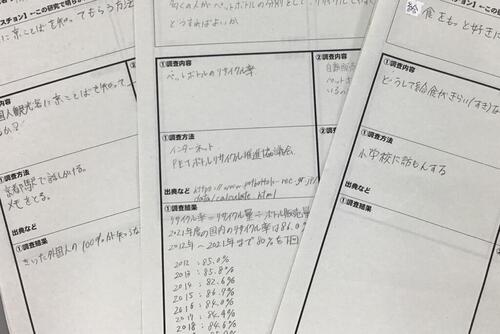 スチョン】←この研究で明ら
に京ことばを知ってもらう方法
内容
国人観光名に京ことばを知って
るか？
①調査方法
京都駅で話しかける。
メモをとる。
出典など
①調査結果
きいた外国人の100%が
どうすればよいか
①調査内容
ペットボトルのリサイクル率
①調査方法
インターネット
PETボトルリサイクル推進協議会
出典など
https://www.petbottle-rec.gr.jp/
data/calculate.html
①調査結果
リサイクル率＝リサイクル量÷ボトル販売量
2021年度の国内のリサイクル率は86.0%
2012年～2021年まで80%を下回
2012：85.0%
2013：85.8%
2014：82.6%
2015：86.9%
2016：84.0%
2017：84.9%
2018：84.6%
②調
自販
ペット
いる
②
スチョン】←この研究で明らか
給食をもっと好きに
①調査内容
どうして給食がきらい(すき)な
①調査方法
小学校に訪もんする
出典など
①調査結果